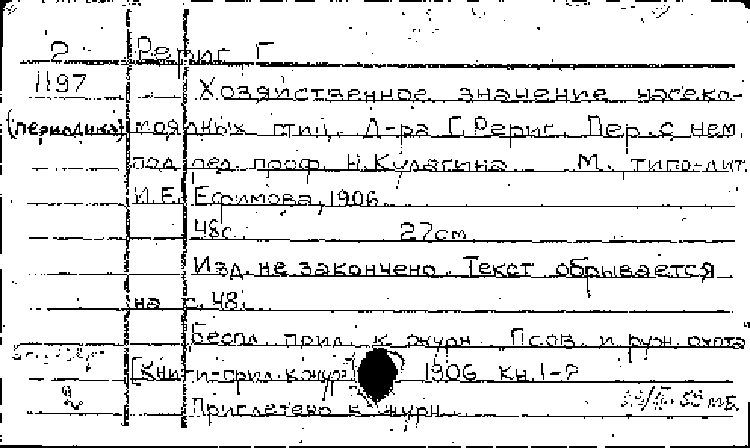 Р Рериг Г.
1197 Хозяйственное значение насеко-
(периодика) моядных птиц. Д-ра Г. Рериг. Пер. с нем.
под ред. проф. Н. Кулагина. М. типо-лит.
И.Е. Ефимова, 1906
48с. 27см
Изд. не закончено. Текст обрывается
на с. 48.
Беспл. прил. к журн. Псов. и руж. охота"
[Книги-прил. к жур 1906 кн. 1-?
2 Приплетено к журн.